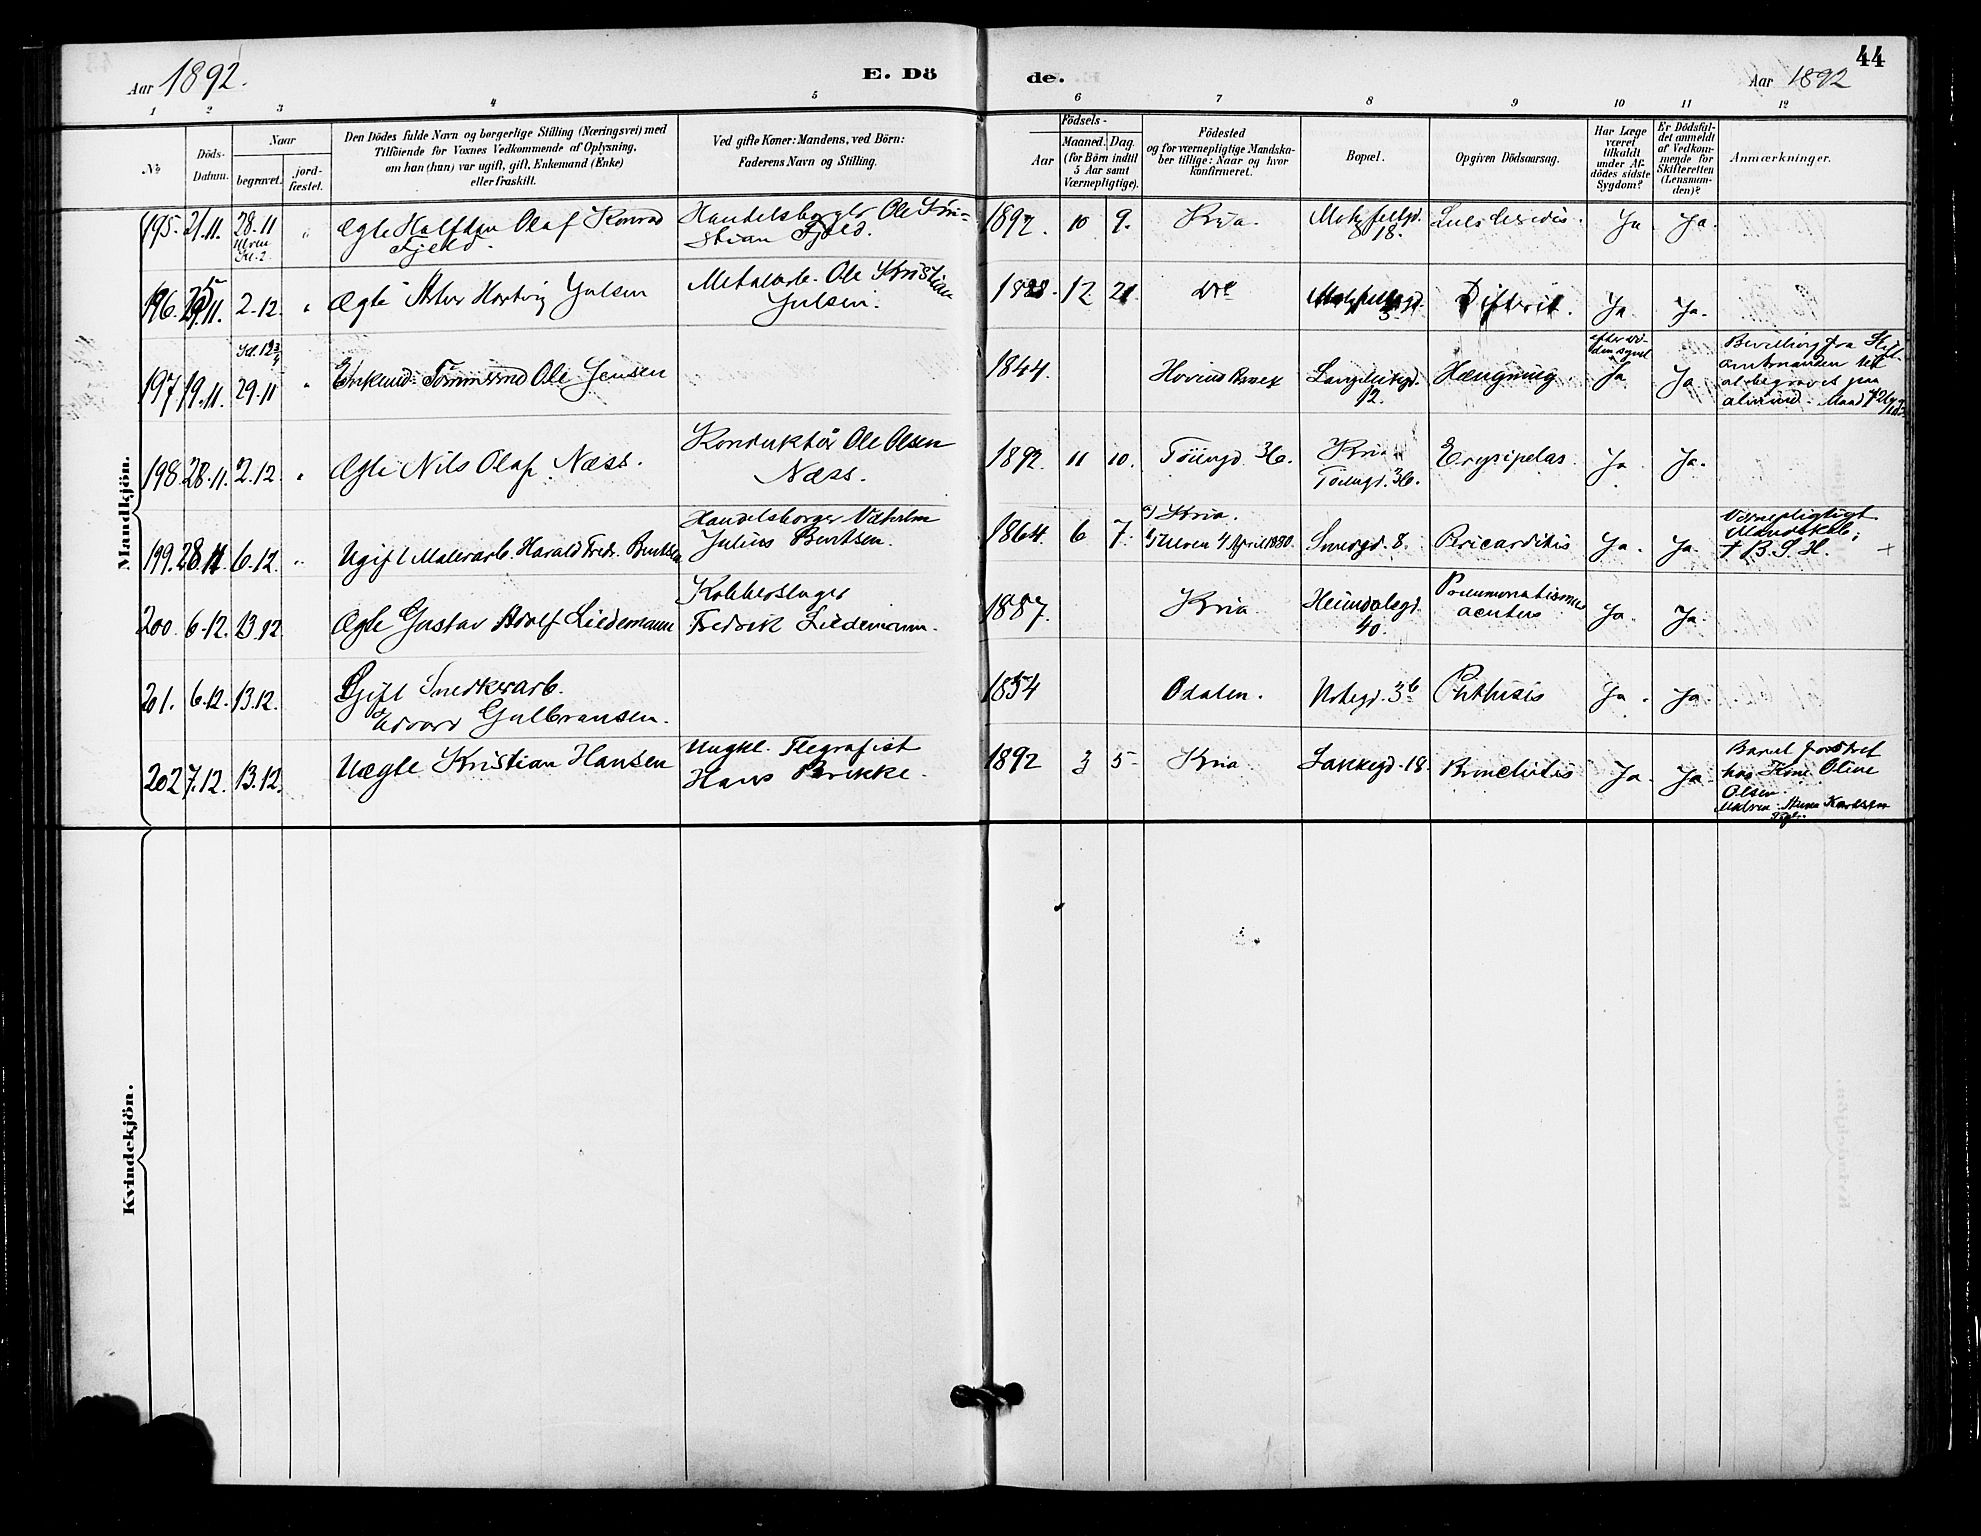 44
Aar 1892.
E. Dö
de.
Aar 1892
1 2 3 4 5 6 7 8 9 10 11 12
No
Döds-
Datum.
Naar
begravet.
jord-
fæstet.
Den Dödes fulde Navn og borgerlige Stilling (Næringsvei) med
Tilföiende for Voxnes Vedkommende af Oplysning,
om han (hun) var ugift, gift, Enkemand (Enke)
eller fraskilt.
Ved gifte Koner: Mandens, ved Börn:
Faderens Navn og Stilling.
Födsels-
Aar
Maaned.
Dag.
(for Börn indtil
5 Aar samt
Værnepligtige).
Födested
og for værnepligtige Mandska-
ber tillige: Naar og hvor
konfirmeret.
Bopæl.
Opgiven Dödsaarsag.
Har Læge
været
tilkaldt
under Af-
dödes sidste
Sygdom?
Er Dödsfal-
det anmeldt
af Vedkom-
mende for
Skifteretten
(Lensman-
den)?
Anmærkninger.
Mandkjön.
195. 21.11. 28.11
Ægte Halfdan Olaf Konrad
Fjeld.
Handelsborger Ole Kri-
stian Fjeld.
1892. 10 9. Kria. Motzfeltgd.
18. Ja. Ja.
196. 2.12. Ægte Hartvig Julsen
Metalarb. Ole Kristian
Julsen.
12 21 do Difterit. Ja Ja.
197 19.11. 29.11 Enkemd. Tömmermd Ole Jensen
1844. Langleikgd.
12. Hængning. Ja Ja
198. 28.11. 2.12. Ægte Nils Olaf Næss.
Konduktör Ole Olsen
Næss.
1892. 11 10. Töiengd. 36. Kria
Töiengd. 36. Erysipelas. Ja Ja.
199. 28.11. 6.12. Ugift Malerarb. Harald Fredr. Berntsen
Handelsborger Vilhelm
Julius Berntsen.
1864. 6 7. Kria.
4 April 1880. Smedgd. 8. Pericarditis Ja. Ja.
Værnepligtigt
Mandskab;
† B. S. H.
200. 6.12. 13.12. Ægte Gustav Adolf Liedemann
Kobberslager
Fredrik Liedemann.
1887. Kria. Heimdalsgd.
40. acutus Ja. Ja.
201. 6.12. 13.12. Gift Snedkerarb.
Edvard Gulbransen.
1854 Odalen. Phthisis Ja. Ja.
202 7.12. 13.12. Uægte Kristian Hansen
Ungkl. Tlegrafist
Hans Brække.
1892 3 5 Kria Lakkegd. 18. Bronchitis Ja. Ja.
Barnet fostret
hos Kone Oline
Olsen.
Kvindekjön.